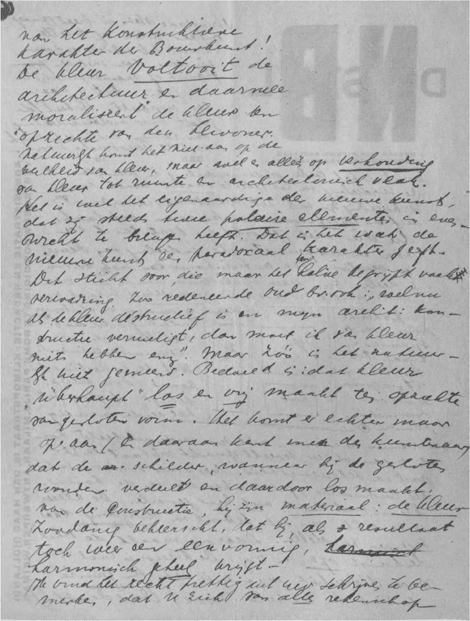 van het konstruktieve
karakter der Bouwkunst!
De kleur voltooit de
architectuur en daarmee
moraliseert de kleur ten
opzichte van den
komt het niet aan op de
van kleur, maar wel en alles op verhouding
van kleur tot ruimte en architectonisch vlak.
Het is wel het eigenaardige der nieuwe kunst,
dat zij steeds twee polaire elementen in even-
wicht te brengen heeft. Dat is het wat de
nieuwe kunst een paradoxaal karakter geeft.
Dit sticht voor die maar het halve begrijpt vaak
verwarring. Zoo redeneerde Oud ook: "wel nu
als de kleur destructief is en mijn archit: kon-
structie vernietigt, dan moet ik van kleur
niets hebben enz". Maar zóó is het natuur-
lijk niet gemeend. Bedoeld is: dat kleur
"überhaupt" los en vrij maakt ten opzichte
van gesloten vorm. Het komt er echter maar
op aan / en daaraan kent men den kunstenaar
dat de schilder, wanneer hij de gesloten
en daardoor los maakt
van de Constructie, hij zijn materiaal: de kleur
zoodanig beheerscht, dat hij als resultaat
toch weer een eenvormig,
harmonisch geheel krijgt—
Ik vind het recht prettig uit uw schrijven te be-
merken, dat U zich van alles rekenschap
NB
D
ST